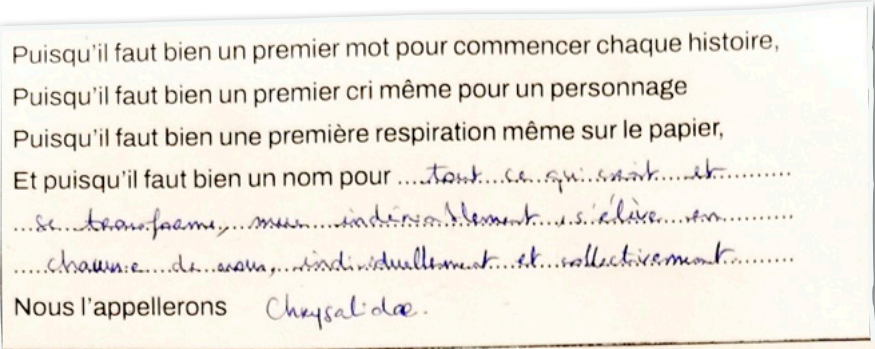 Puisqu'il faut bien un premier mot pour commencer chaque histoire,
Puisqu'il faut bien un premier cri même pour un personnage
Puisqu'il faut bien une première respiration même sur le papier,
Et puisqu'il faut bien un nom pour tout ce qui croît et
se transforme, mue indéniablement, s'élève en
chacun.e de nous, individuellement et collectivement
Nous l'appellerons Chrysalidæ.